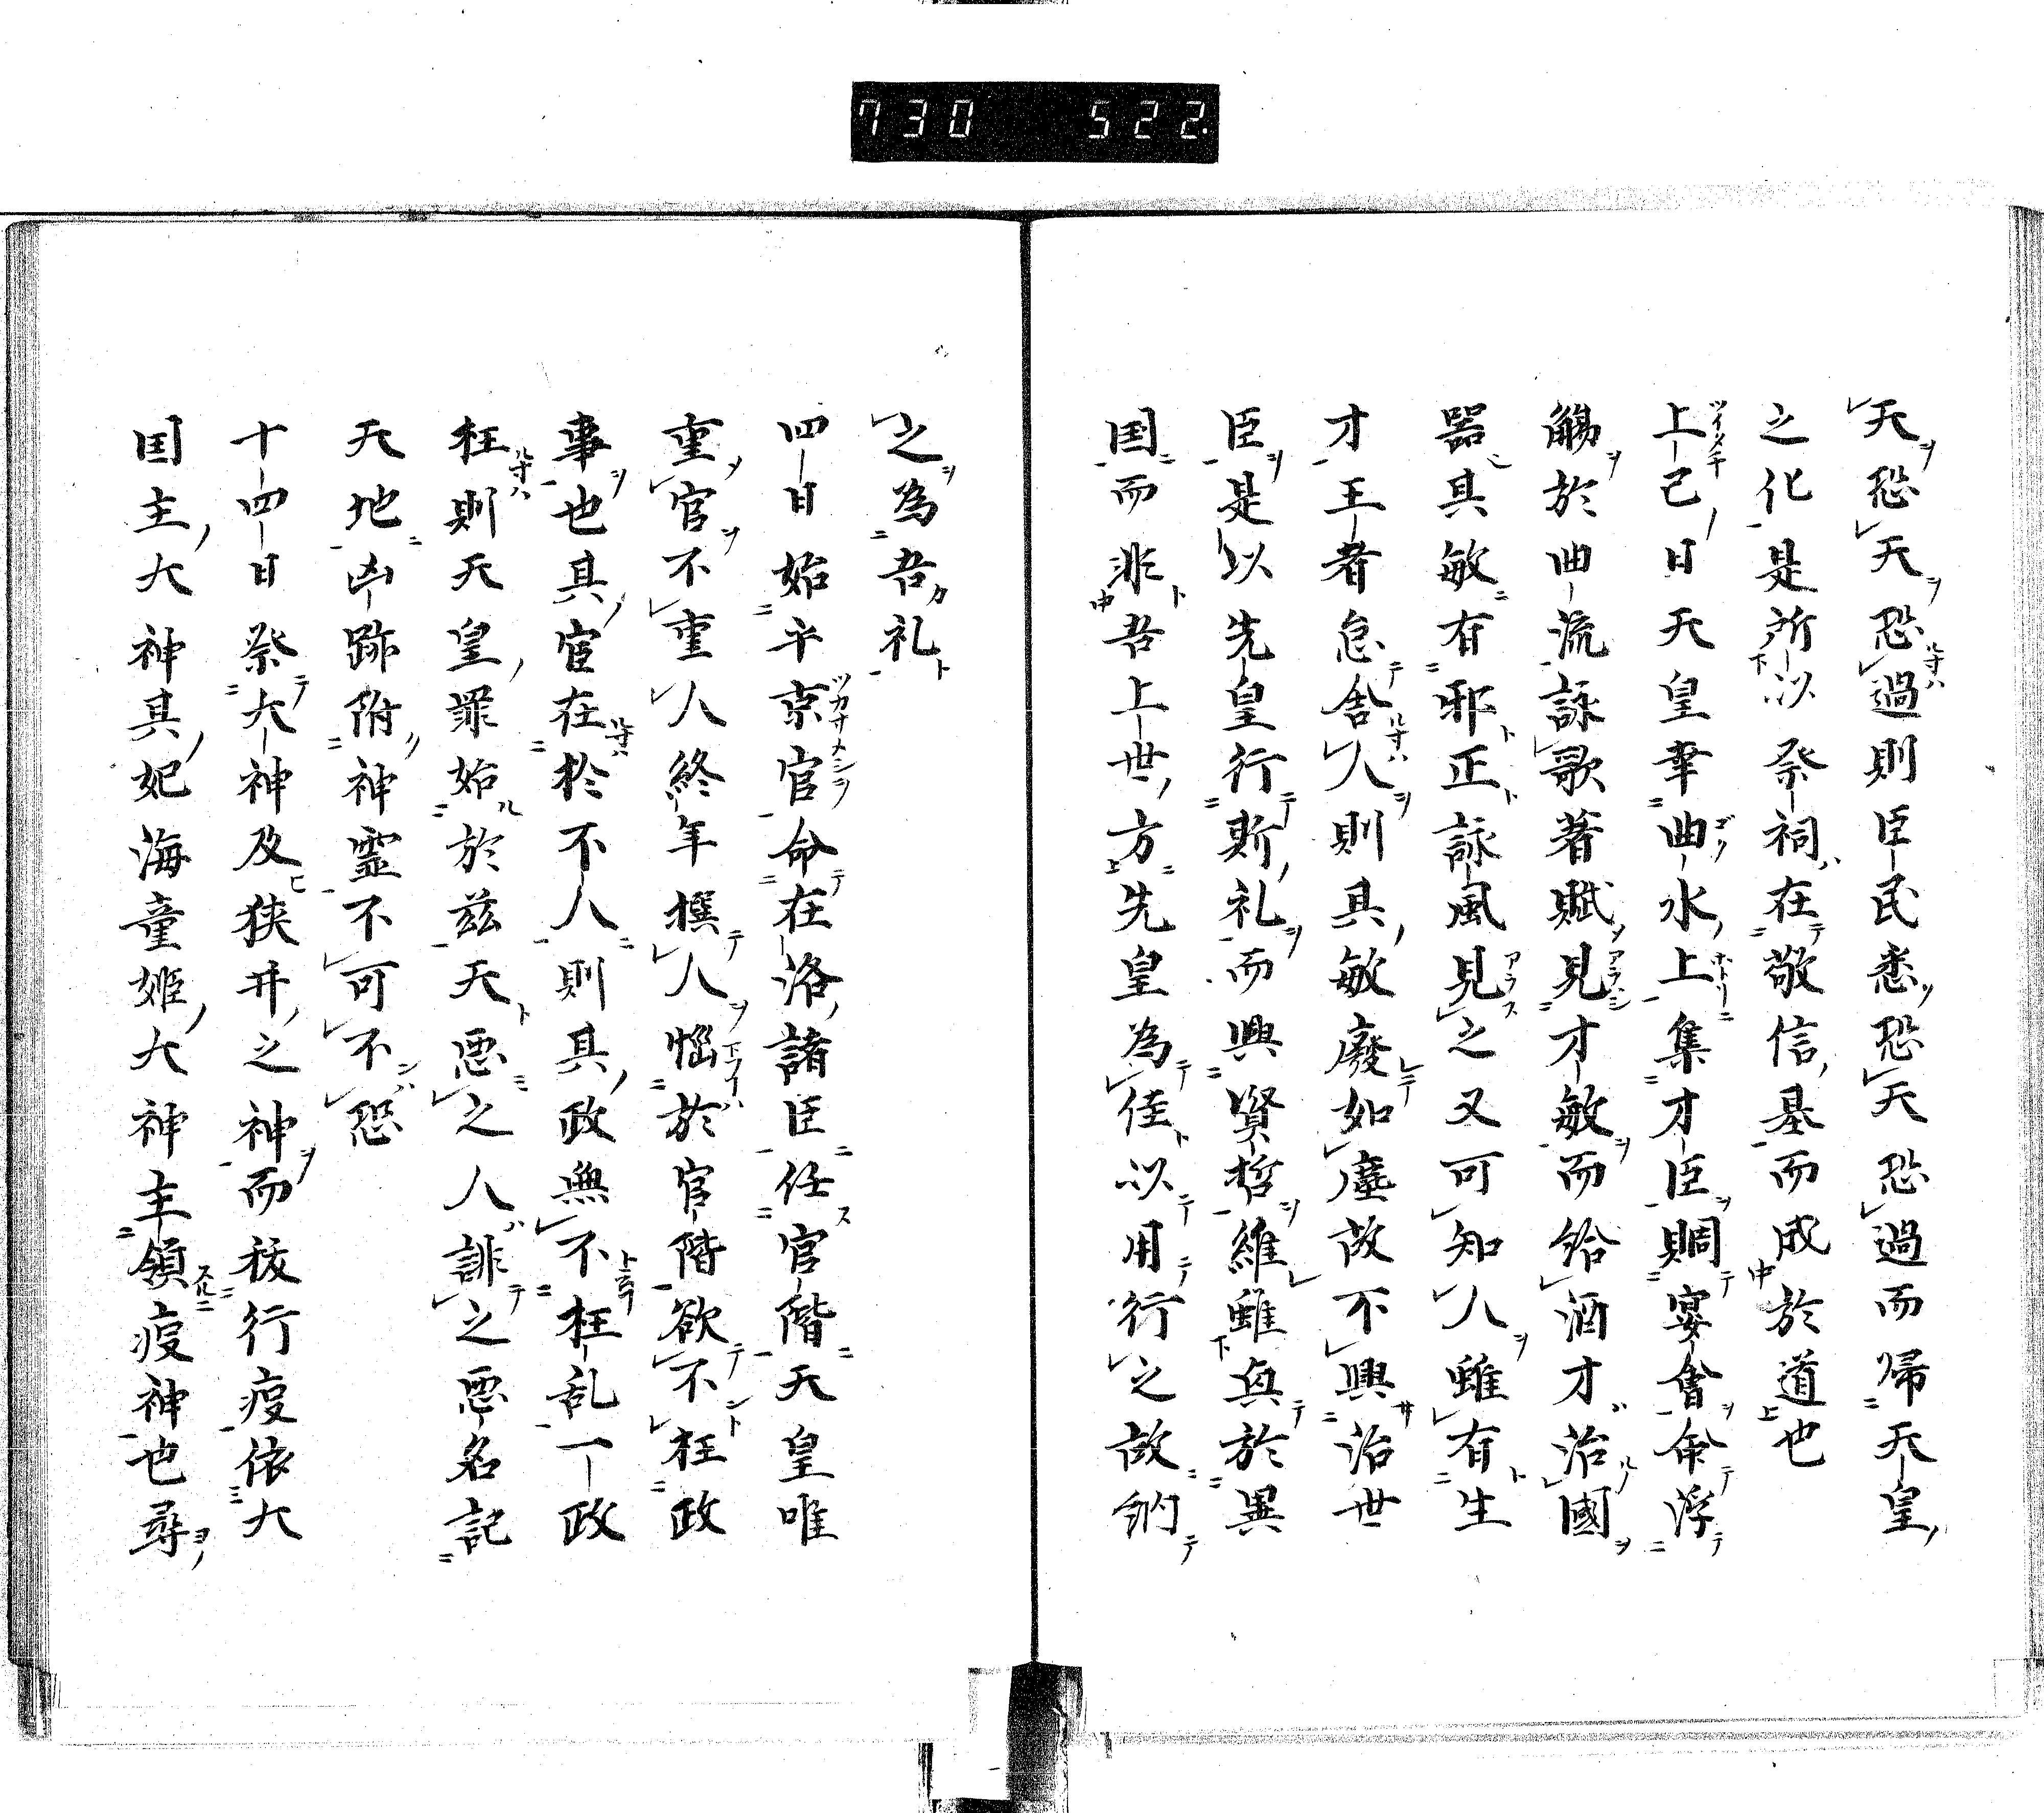 730 522.
天恐天恐過則臣民悉恐天恐過而帰天皇
之化是所以祭祠在敬信基而成於道也
上巳日天皇幸曲水上集才臣賜宴會令浮
觴於曲流詠歌著賦見才敏而給酒才治國
器具敏有邪正詠風見之又可知人雖有生
才王者怠舍人則其敏廢如塵故不興治世
臣是以先皇行斯礼而興賢哲維雖興於異
国而非吾上世方先皇為佳以用行之故納
之為吾礼
四日始平京官命在洛諸臣任官階天皇唯
重官不重人終年撰人惱於官階欲不枉政
事也其官在於不人則其政無不枉乱一政
枉則天皇罪始於茲天悪之人誹之悪名記
天地凶跡附神霊不可不恐
十四日祭大神及狭井之神而祓行疫依大
国主大神其妃海童姫大神主領疫神也尋